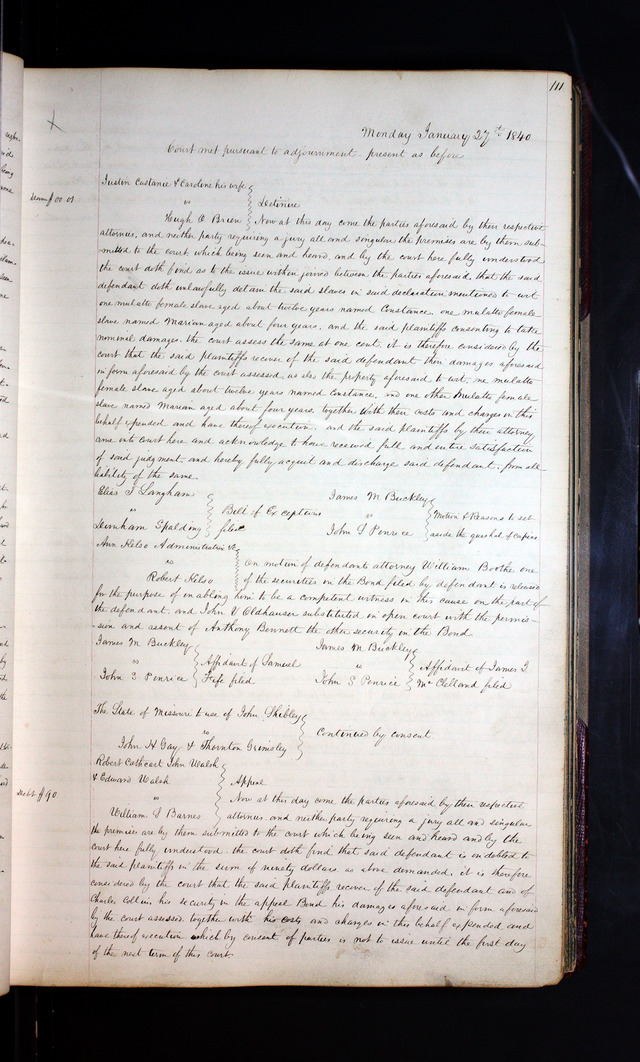 111
Monday January 27th 1840
Court met pursuant to adjournment present as before
Justin Castance & Cardine his wife
vs
Detinue
Hugh O Brien
Now at this day come the parties aforesaid by their respective
attornies, and neither party requiring a jury all and singular the premises are by them sub-
mitted to the court which being seen and heard, and by the court here fully understood
the court doth find as to the issue within joined between the parties aforesaid, that the said
defendant doth unlawfully detain the said slaves in said declaration mentioned to wit
one mulatto female slave aged about twelve years named Constance one mulatto female
slave named Mariam aged about four years, and the said plaintiffs consenting to take
nominal damages. the court assess the same at one cent, it is therefore considered by the
court that the said plaintiffs recover of the said defendant their damages aforesaid
in form aforesaid by the court assessed, as also the property aforesaid to wit, one mulatto
female slave aged about twelve years named Constance, and one other Mulatto female
slave named Mariam aged about four years, together with their costs and charges in this
behalf expended and have thereof execution. and the said plaintiffs by their attorney
came into court here and acknowledge to have received full and entire satisfaction
of said judgment, and hereby fully acquit and discharge said defendant, from all
liability of the same.
Elias T Langham
vs
Dernham Spalding
Bill of Exceptions
filed
James M Buckley
"
John S Penrice
Motion & Reasons to set
aside the quashal of capias
Ann Kelso Administratrix &c
vs
Robert Kelso
On motion of defendants attorney William Boothe one
of the securities in the Bond filed by defendant is released
for the purpose of enabling him to be a competent witness in this cause on the part of
the defendant, and John V Oldhauser substituted in open court with the permis-
sion and assent of Anthony Bennett the other security in the Bond
James M Buckley
vs
John S Penrice
Affidavit of Samuel
Fife filed
James M Buckley
"
John S Penrice
Affidavit of James T
McClelland filed
The State of Missouri to use of John Shibley
vs
John H Gay & Thornton Grimsley
Continued by consent
Robert Cathcart John Walsh
& Edward Walsh
vs
William S Barnes
Debt $90
Appeal
Now at this day come the parties aforesaid by their respective
attornies, and neither party requiring a jury all and singular
the premises are by them submitted to the court which being seen and heard and by the
court here fully understood. the court doth find that said defendant is indebted to
the said plaintiffs in the sum of ninety dollars as above demanded, it is therefore
considered by the court that the said plaintiffs recover of the said defendant and of
Charles Collins, his security in the appeal Bond his damages aforesaid in form aforesaid
by the court assessed together with his costs and charges in this behalf expended and
have thereof execution which by consent of parties is not to issue until the first day
of the next term of this court.